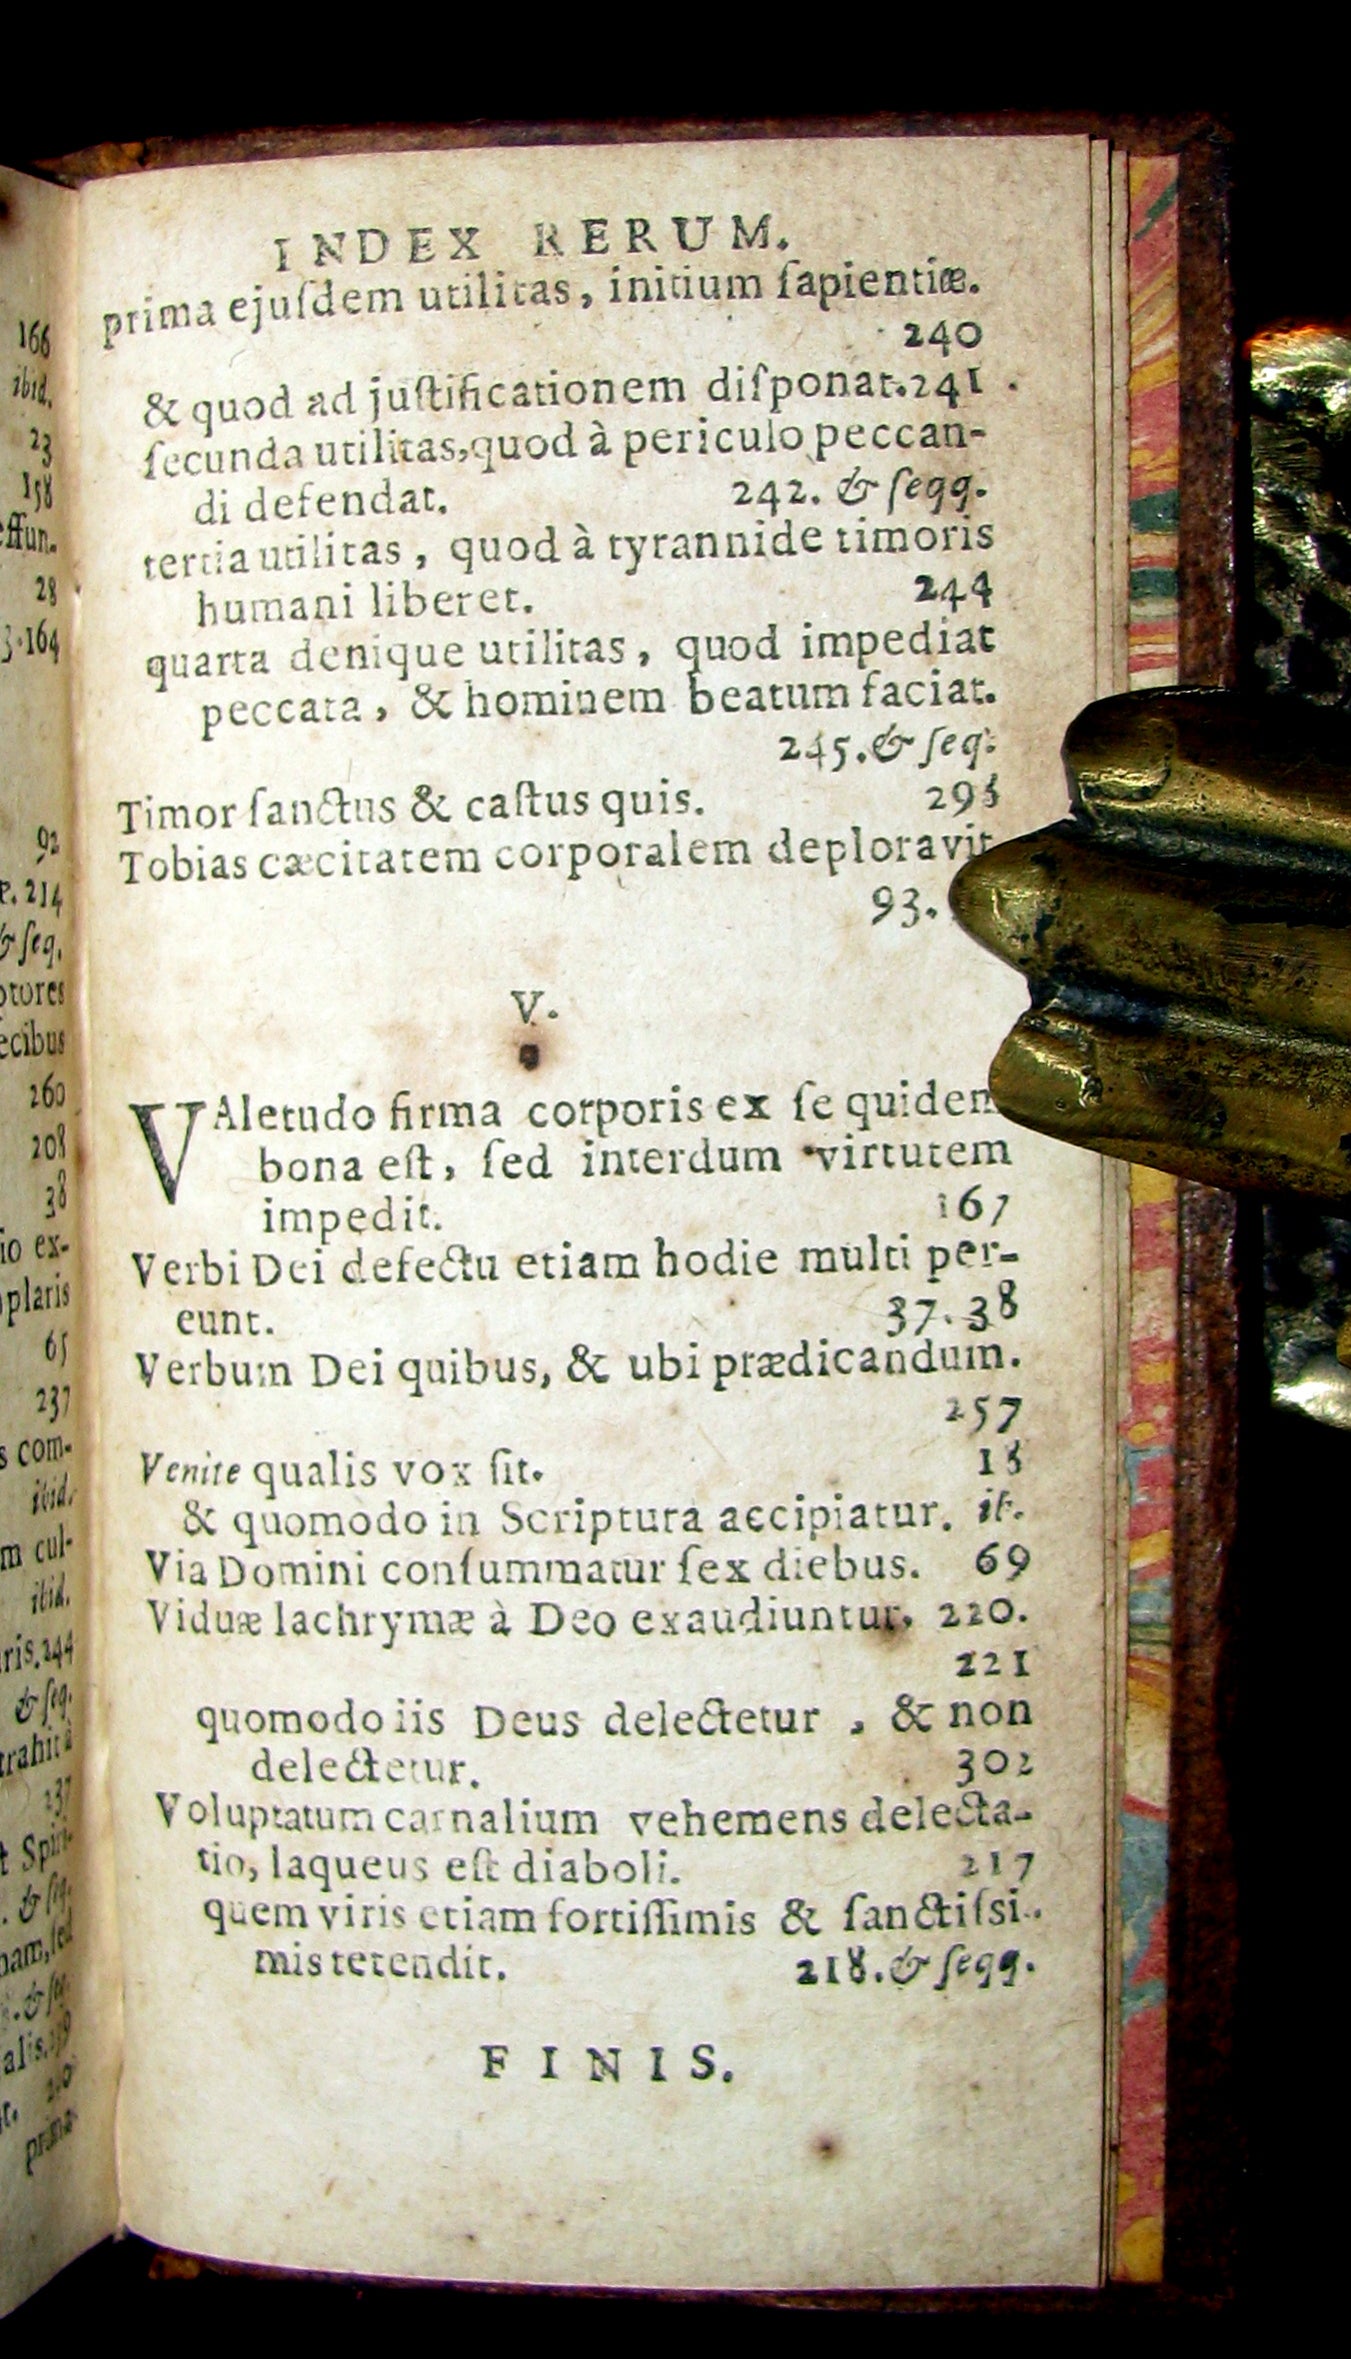 INDEX RERUM.
prima ejuſdem utilitas, initium ſapientiæ.
240
& quod ad juſtificationem diſponat. 241
ſecunda utilitas, quod à periculo peccan-
di defendat. 242. & ſeqq.
tertia utilitas, quod à tyrannide timoris
humani liberet. 244
quarta denique utilitas, quod impediat
peccata, & hominem beatum faciat.
245. & ſeq.
Timor ſanctus & caſtus quis.
Tobias cæcitatem corporalem deploravit
93.
V.
VAletudo firma corporis ex ſe quidem
bona eſt, ſed interdum virtutem
impedit. 167
Verbi Dei defectu etiam hodie multi per-
eunt. 37. 38
Verbum Dei quibus, & ubi prædicandum.
257
Venite qualis vox ſit.
& quomodo in Scriptura accipiatur.
Via Domini conſummatur ſex diebus. 69
Viduæ lachrymæ à Deo exaudiuntur. 220.
221
quomodo iis Deus delectetur, & non
delectetur. 302
Voluptatum carnalium vehemens delecta-
tio, laqueus eſt diaboli. 217
quem viris etiam fortiſſimis & ſanctiſsi-
mis tetendit. 218. & ſeqq.
FINIS.
166
ibid.
23
158
effun-
28
3. 164
92
214
& ſeq.
ptores
ecibus
260
208
38
io ex-
plaris
65
237
s com-
ibid.
m cul-
ibid.
ris. 244
& ſeq.
trahit à
237